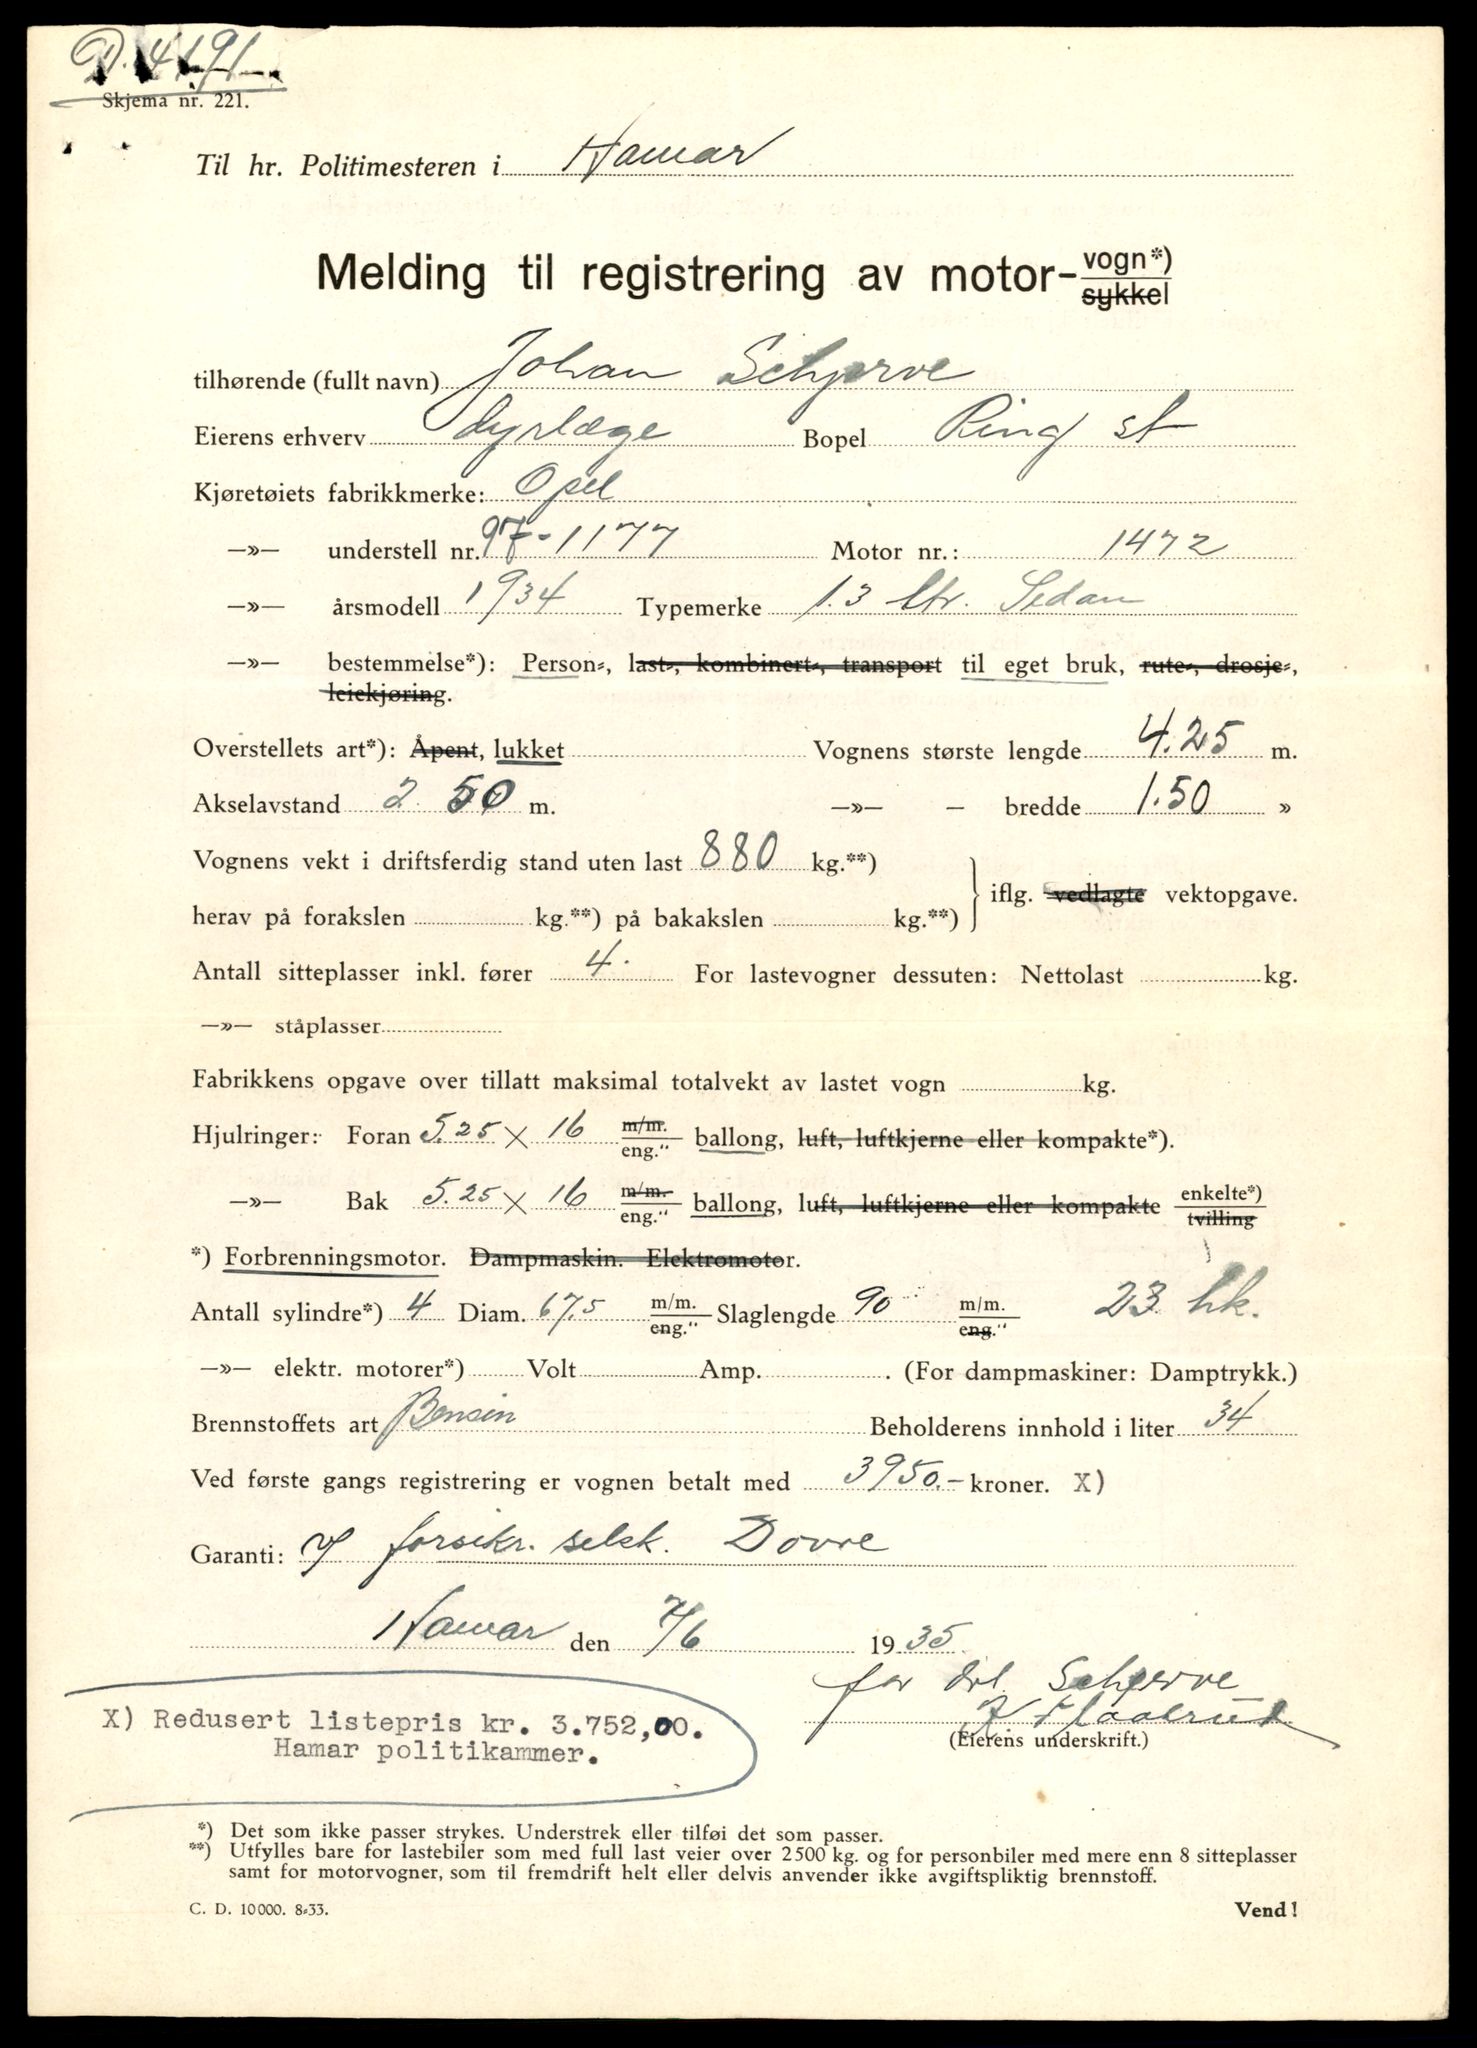 D. 4191
Skjema nr. 221.
Til hr. Politimesteren i Hamar
Melding til registrering av motor- vogn*) sykkel
tilhørende (fullt navn) Johan Schjerve
Eierens erhverv dyrlæge Bopel Ring st
Kjøretøiets fabrikkmerke: Opel
—»— understell nr. 97-1177 Motor nr.: 1472
—»— årsmodell 1934 Typemerke 1.3 ltr. Sedan
—»— bestemmelse*): Person-, last-, kombinert-, transport til eget bruk, rute-, drosje-,
leiekjøring.
Overstellets art*): Åpent, lukket Vognens største lengde 4.25 m.
Akselavstand 2.50 m. —»— — bredde 1.50 »
Vognens vekt i driftsferdig stand uten last 880 kg.**)
iflg. vedlagte vektopgave.
herav på forakslen kg.**) på bakakslen kg.**)
Antall sitteplasser inkl. fører 4. For lastevogner dessuten: Nettolast kg.
—»— ståplasser
Fabrikkens opgave over tillatt maksimal totalvekt av lastet vogn kg.
Hjulringer: Foran 5.25 × 16 m/m. eng." ballong, luft, luftkjerne eller kompakte*).
—»— Bak 5.25 × 16 m/m. eng." ballong, luft, luftkjerne eller kompakte enkelte*) tvilling
*) Forbrenningsmotor. Dampmaskin. Elektromotor.
Antall sylindre*) 4 Diam. 67.5 m/m. eng." Slaglengde 90 m/m. eng." 23 hk.
—»— elektr. motorer*) Volt Amp. . (For dampmaskiner: Damptrykk.)
Brennstoffets art Bensin Beholderens innhold i liter 34
Ved første gangs registrering er vognen betalt med 3950.- kroner. X)
Garanti: I forsikr. selsk. Dovre
Hamar den 7/6 1935
for drl. Schjerve
(Eierens underskrift.)
X) Redusert listepris kr. 3.752,00.
Hamar politikammer.
*) Det som ikke passer strykes. Understrek eller tilføi det som passer.
**) Utfylles bare for lastebiler som med full last veier over 2500 kg. og for personbiler med mere enn 8 sitteplasser
samt for motorvogner, som til fremdrift helt eller delvis anvender ikke avgiftspliktig brennstoff.
C. D. 10000. 8-33.
Vend!